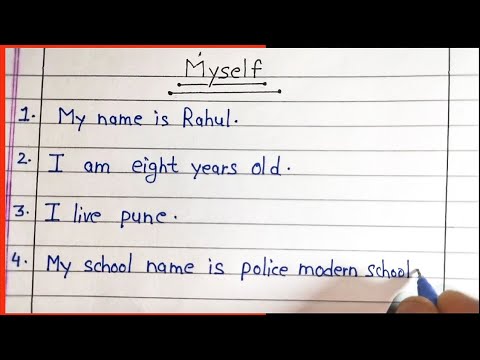 Myself
1. My name is Rahul.
2. I am eight years old.
3. I live pune.
4. My school name is police modern school.